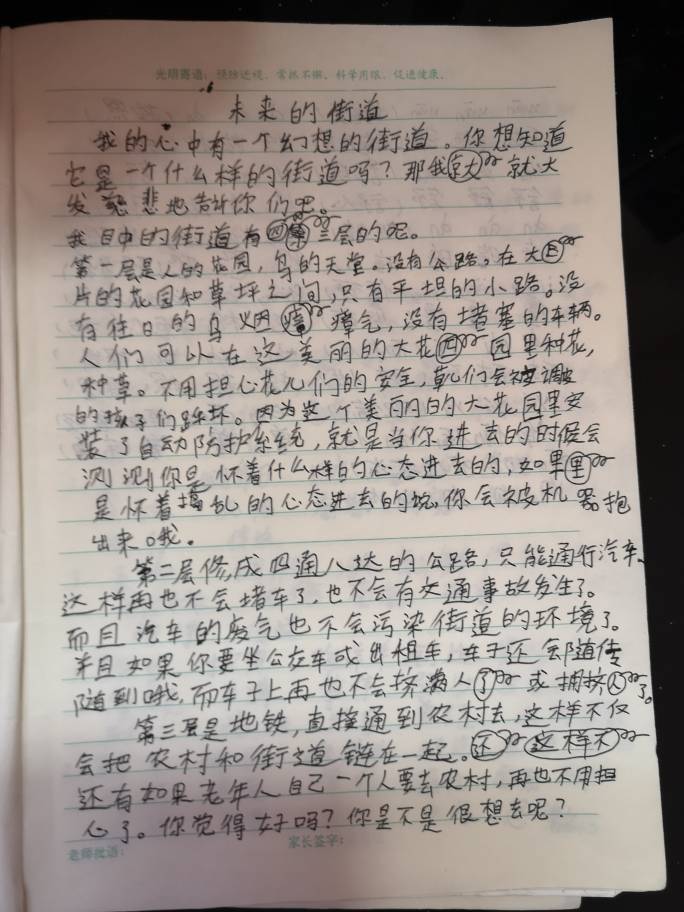 光明寄语：预防近视、常抓不懈、科学用眼、促进健康。
未来的街道
我的心中有一个幻想的街道。你想知道
它是一个什么样的街道吗？那我就大
发慈悲地告诉你们吧。
我目中的街道有三层的呢。
第一层是人的花园，鸟的天堂。没有公路。在大
片的花园和草坪之间，只有平坦的小路。没
有往日的乌烟瘴气，没有堵塞的车辆。
人们可以在这美丽的大花园里种花，
种草。不用担心花儿们的安全，草儿们会被调皮
的孩子们踩坏。因为这个美丽的大花园里安
装了自动防护系统，就是当你进去的时候会
测测你是怀着什么样的心态进去的，如果
是怀着捣乱的心态进去的说，你会被机器抱
出来哦。
第二层修成四通八达的公路，只能通行汽车、
这样再也不会堵车了，也不会有交通事故发生了。
而且汽车的废气也不会污染街道的环境了。
并且如果你要坐公交车或出租车，车子还会随传
随到哦，而车子上再也不会挤满人或拥挤了。
第三层是地铁，直接通到农村去，这样不仅
会把农村和街道链在一起。
还有如果老年人自己一个人要去农村，再也不用担
心了。你觉得好吗？你是不是很想去呢？
老师批语： 家长签字：